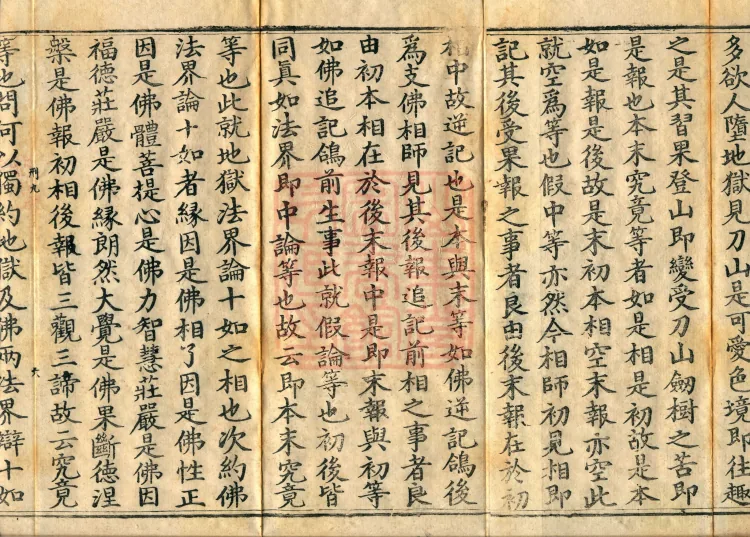 多欲人墮地獄見刀山是可愛色境即往趣
之是其習果登山即變受刀山劒樹之苦即
是報也本末究竟等者如是相是初故是本
如是報是後故是末初本相空末報亦空此
就空爲等也假中等亦然今相師初見相即
記其後受果報之事者良由後末報在於初
相中故逆記也是本與末等如佛逆記鴿後
爲支佛相師見其後報追記前相之事者良
由初本相在於後末報中是即末報與初等
如佛追記鴿前生事此就假論等也初後皆
同眞如法界即中論等也故云即本末究竟
等也此就地獄法界論十如之相也次約佛
法界論十如者緣因是佛相了因是佛性正
因是佛體菩提心是佛力智慧莊嚴是佛因
福德莊嚴是佛緣朗然大覺是佛果斷德涅
槃是佛報初相後報皆三觀三諦故云究竟
刑九
六
等也問何以獨約地獄及佛兩法界辯十如